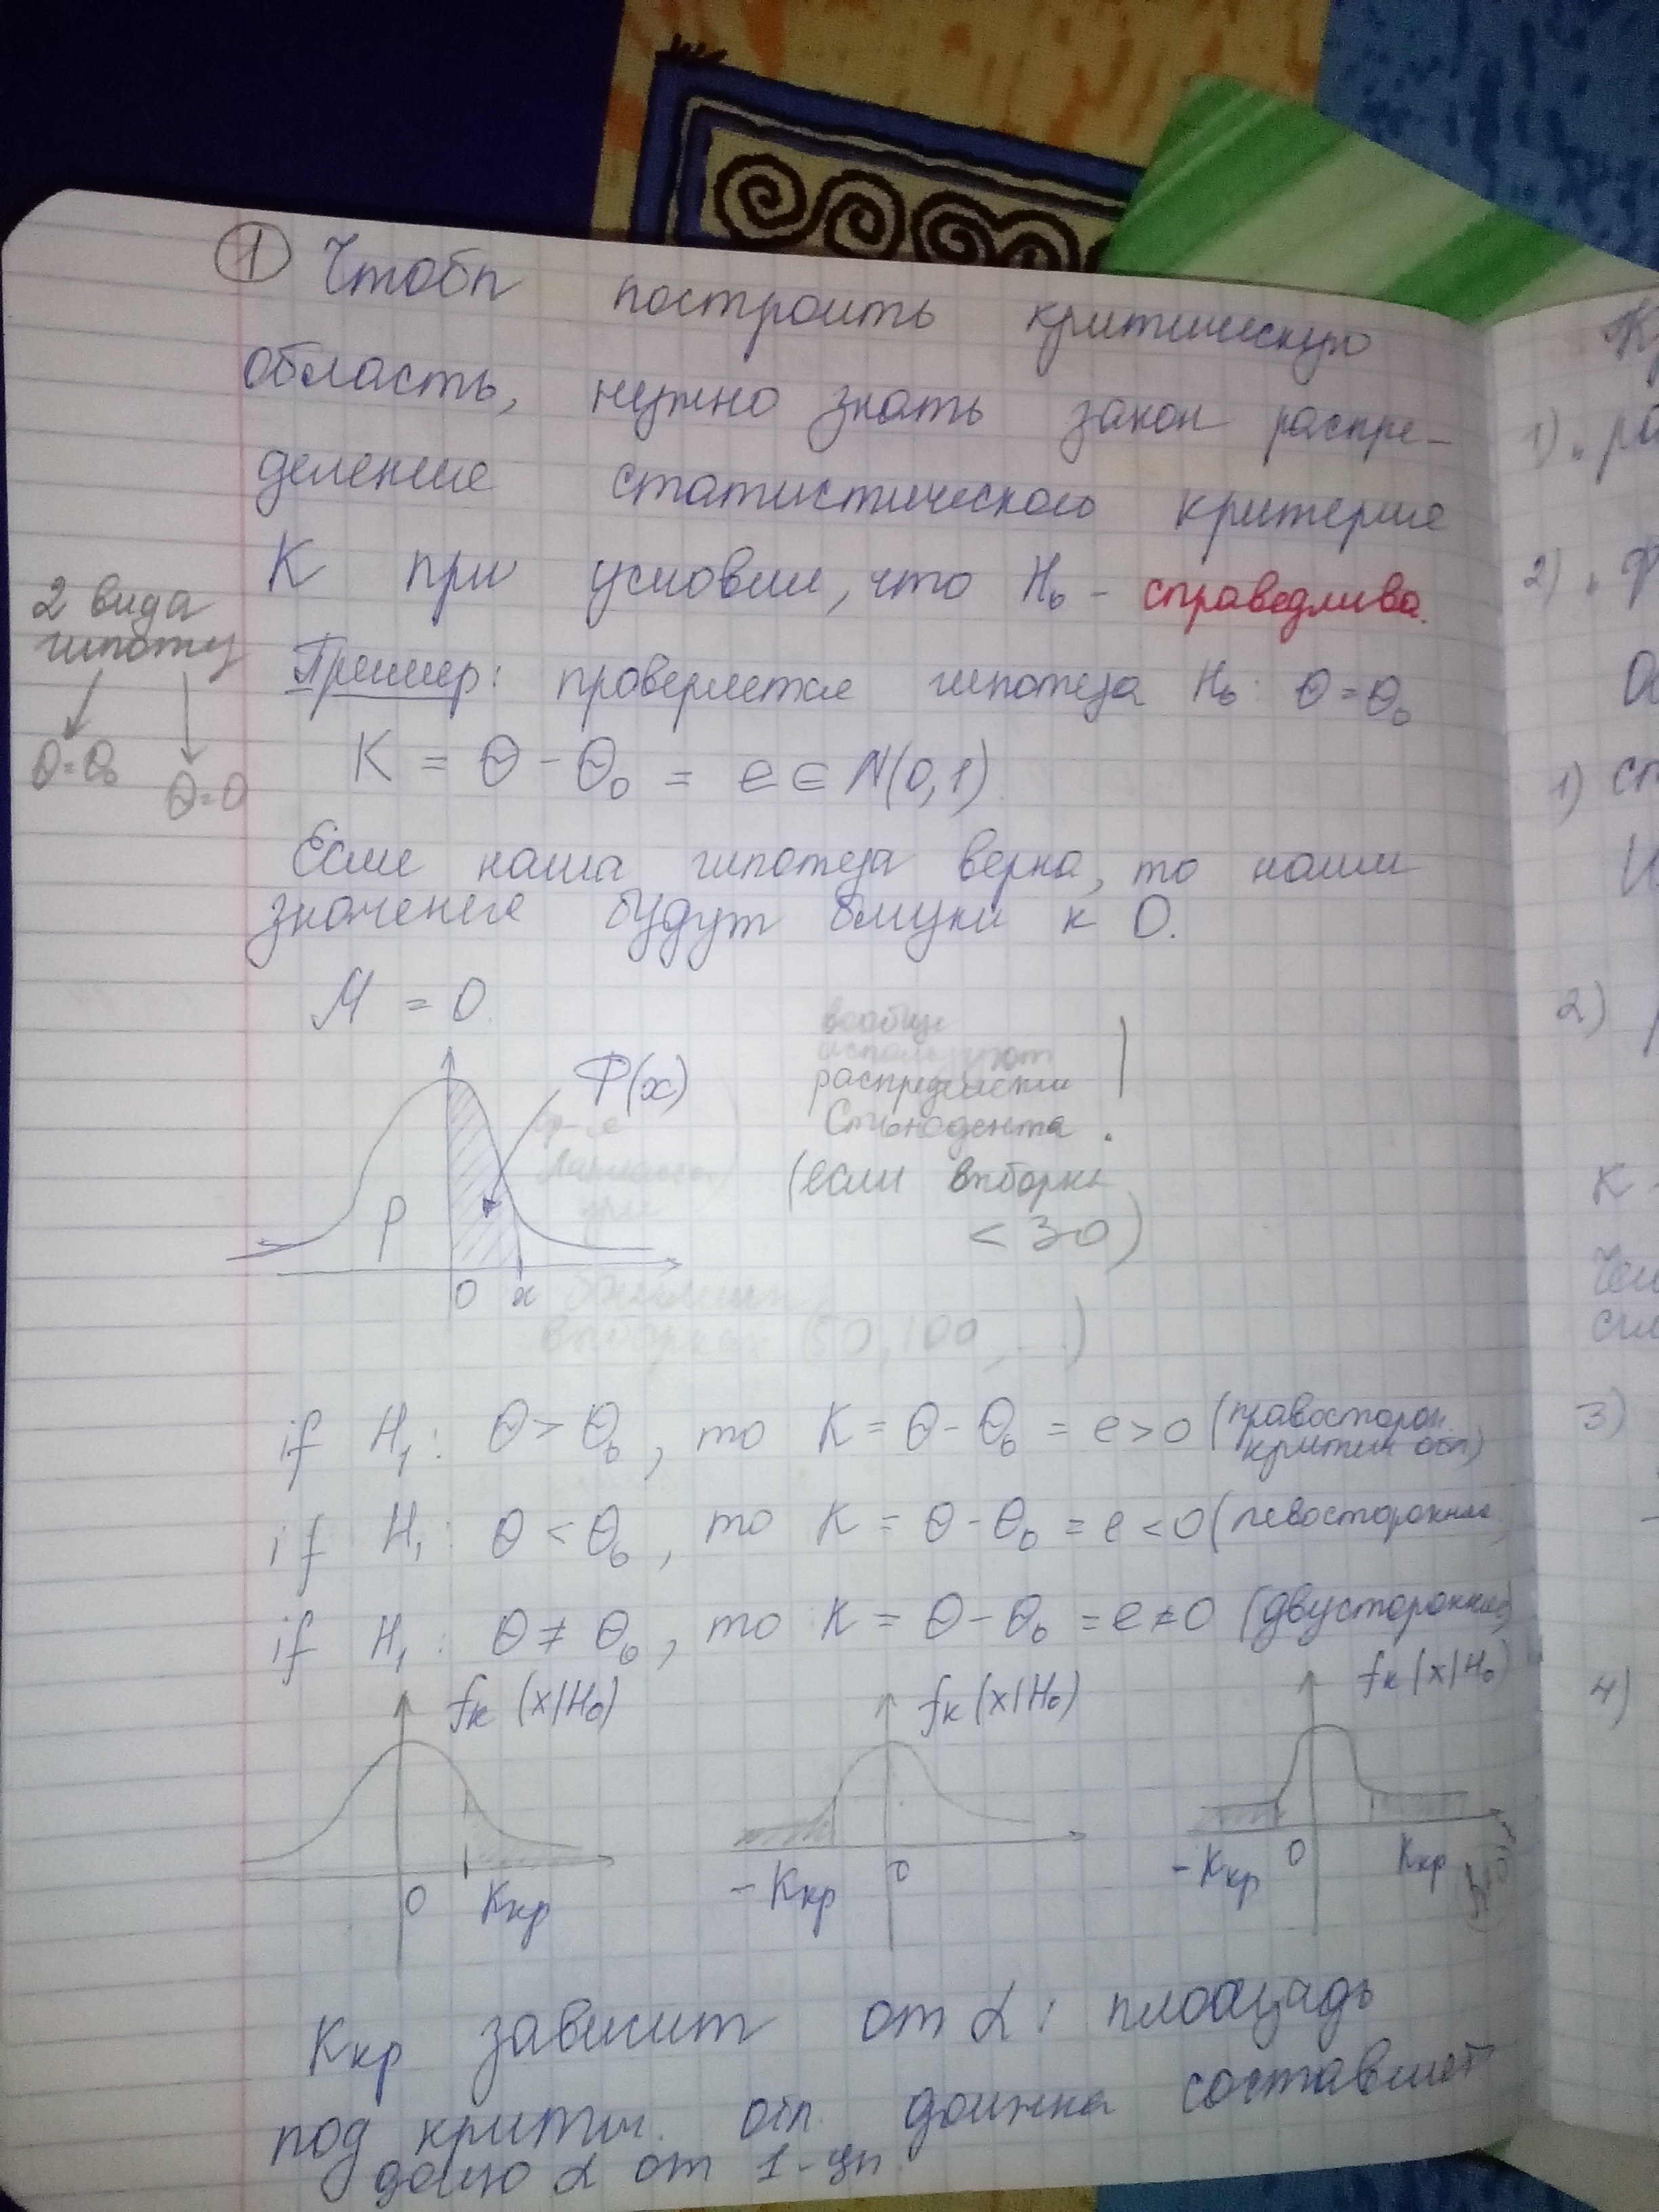 ① Чтобы построить критическую
область, нужно знать закон распре-
деление статистического критерия
К при условии, что H₀ - справедлива.
2 вида
гипотез
θ=θ₀
θ=0
Пример: проверяется гипотеза H₀: θ=θ₀
K = θ - θ₀ = e ∈ N(0,1)
Если наша гипотеза верна, то наши
значения будут близки к 0.
M = 0.
Ф(x)
ф-я
Лапласа
при
больших
выборках (50, 100, ...)
вообще
используют
распределении
Стьюдента
(если выборка
< 30)
P
0 x
if H₁: θ > θ₀, то K = θ - θ₀ = e > 0 (правосторон.
критич обл)
if H₁: θ < θ₀, то K = θ - θ₀ = e < 0 (левосторонняя
if H₁: θ ≠ θ₀, то K = θ - θ₀ = e ≠ 0 (двусторонняя)
fк (x/H₀) fк (x/H₀) fк (x/H₀)
0 Kкр
- Kкр 0
- Kкр 0 Kкр
Kкр зависит от α: площадь
под критич. обл. должна составлять
долю α от 1-цы
1)
2)
1)
2)
К
3)
4)